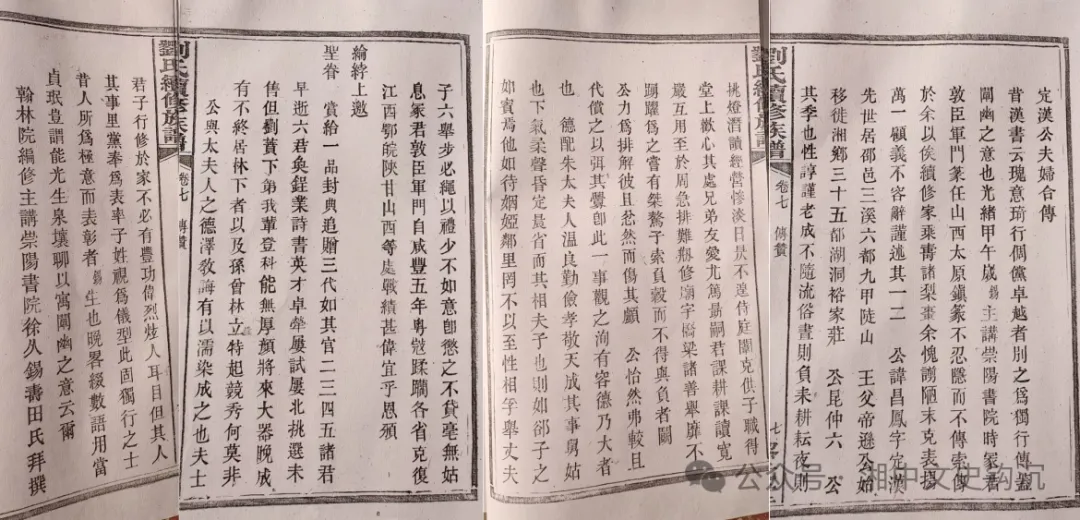 定漢公夫婦合傳
昔漢書云瑰意琦行倜儻卓越者別之為獨行傳蓋
闡幽之意也光緒甲午歲錫主講崇陽書院時冢君
敦臣軍門篆任山西太原鎮篆不忍隱而不傳索傳
於余以俟續修家乘壽諸梨棗余愧譾陋末克表揚
萬一顧義不容辭謹述其一二 公諱昌鳳字定漢
先世居邵邑三溪六都九甲陡山 王父帝遜公始
移徙湘鄉三十五都湖洞裕家莊 公昆仲六 公
其季也性諄謹老成不隨流俗晝則負耒耕耘夜則
劉氏續修族譜 卷七 傳贊 七
挑燈潛讀經營慘淡日昃不遑侍庭闈克供子職得
堂上歡心其處兄弟友愛尤篤勗嗣君課耕課讀寬
嚴互用至於周急排難剏修廟宇橋梁諸善舉靡不
踴躍為之嘗有桀驁子索負穀而不得與負者鬭
公力為排解彼且忿然而傷其顱 公怡然弗較且
代償之以弭其釁卽此一事觀之洵有容德乃大者
也 德配朱太夫人溫良勤儉孝敬天成其事舅姑
也下氣柔聲昏定晨省而其相夫子也則如郤子之
如賓焉他如待姻婭鄰里罔不以至性相孚舉丈夫
子六舉步必繩以禮少不如意卽懲之不貸毫無姑
息冢君敦臣軍門自咸豐五年粵寇蹂躪各省克復
江西鄂皖陝甘山西等處戰績甚偉宜乎恩頒
綸綍上邀
聖眷 賞給一品封典追贈三代如其官二三四五諸君
早逝六君奐鋥業詩書英才卓犖屢試屢北挑選未
售但劉蕡下第我輩登科能無厚顏將來大器晚成
有不終居林下者以及孫曾林立特起競秀何莫非
公與太夫人之德澤教誨有以濡染成之也夫士
劉氏續修族譜 卷七 傳贊
君子行修於家不必有豐功偉烈炫人耳目但其人
其事里黨奉為表率子姓視為儀型此固獨行之士
昔人所為極意而表彰者錫生也晚畧綴數語用當
貞珉豈謂能光生泉壤聊以寓闡幽之意云爾
翰林院編修主講崇陽書院徐乆錫壽田氏拜撰
公众号·湘中文史钩沉